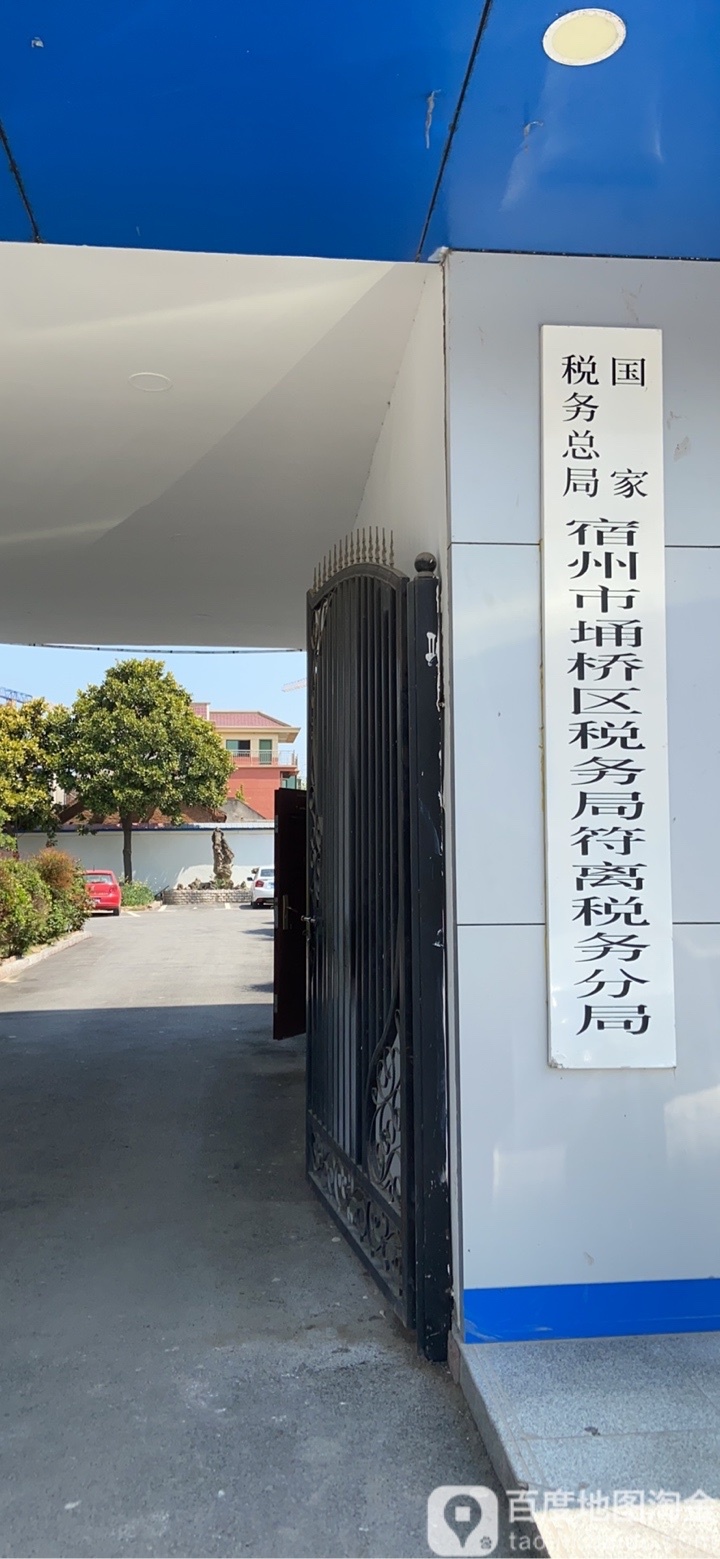 国家
税务总局
宿州市埇桥区税务局符离税务分局
百度地图淘金